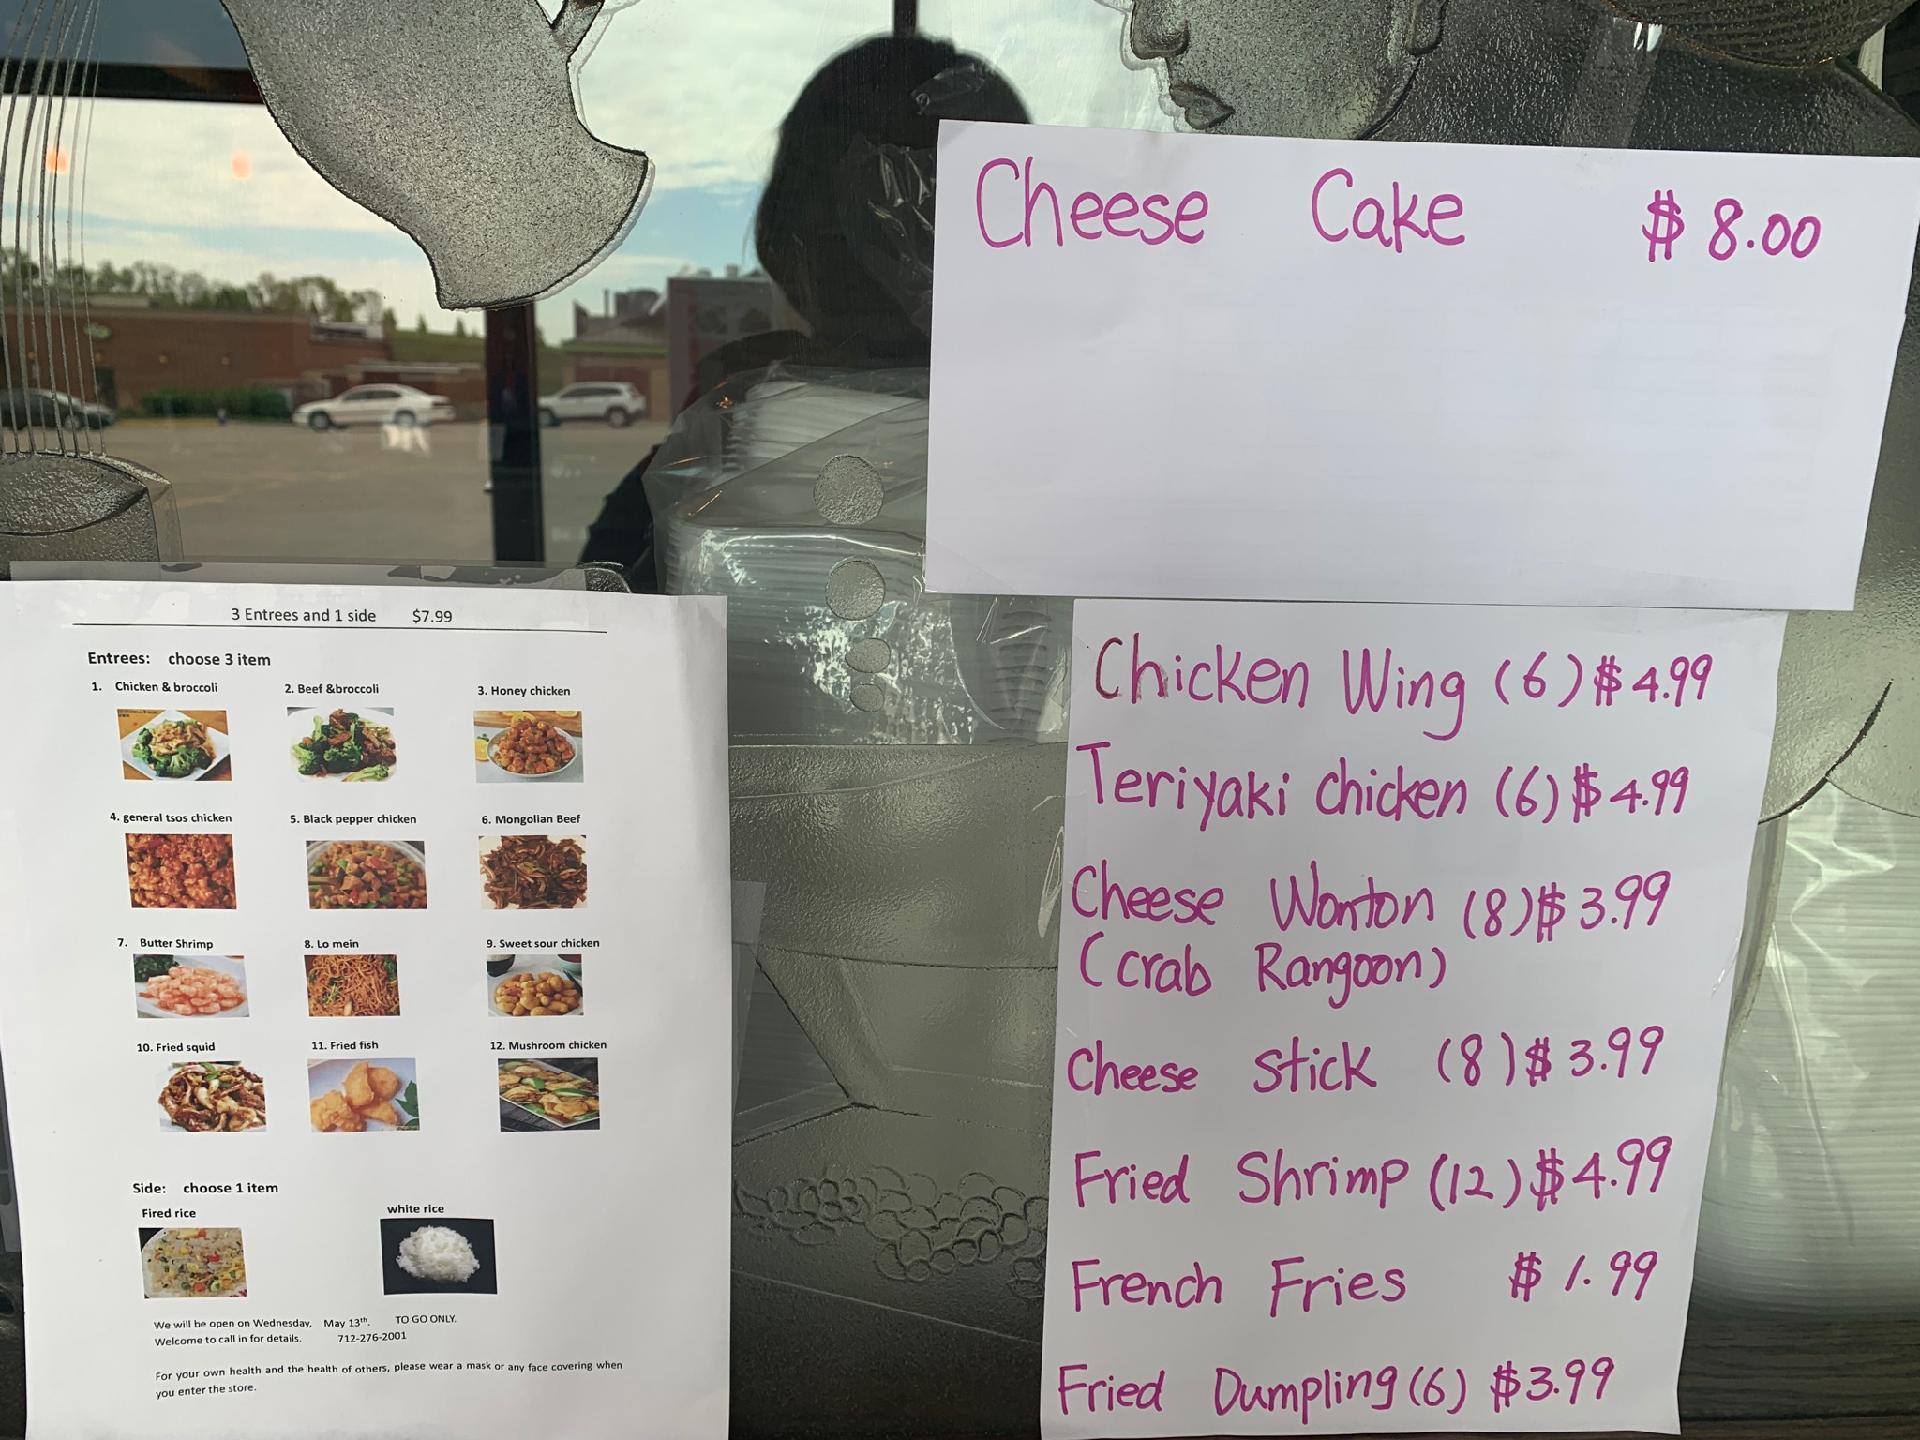 Cheese Cake $ 8.00
3 Entrees and 1 side $7.99
Entrees: choose 3 item
1. Chicken & broccoli 2. Beef &broccoli 3. Honey chicken
4. general tsos chicken 5. Black pepper chicken 6. Mongolian Beef
7. Butter Shrimp 8. Lo mein 9. Sweet sour chicken
10. Fried squid 11. Fried fish 12. Mushroom chicken
Side: choose 1 item
Fired rice white rice
We will be open on Wednesday, May 13th. TO GO ONLY.
Welcome to call in for details. 712-276-2001
For your own health and the health of others, please wear a mask or any face covering when
you enter the store.
Chicken Wing (6) $4.99
Teriyaki chicken (6) $4.99
Cheese Wonton (8) $3.99
(crab Rangoon)
Cheese stick (8) $3.99
Fried Shrimp (12) $4.99
French Fries $1.99
Fried Dumpling (6) $3.99